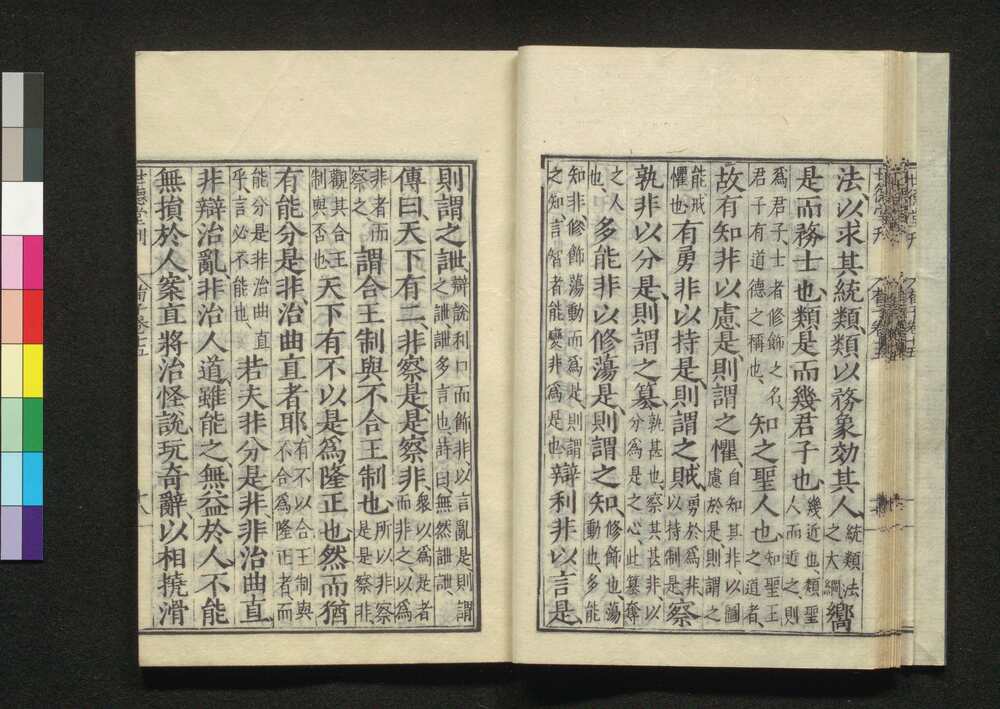 法、以求其統類、類以務象効其人、統類法
之大綱嚮
是而務士也、類是而幾君子也、幾近也、類聖
人而近之、則
爲君子、士者修飾之名、
君子有道德之稱也、知之聖人也、知聖王
之道者、
故有知非以慮是、則謂之懼、自知其非、以圖
慮於是、則謂之
能戒
懼也、有勇非以持是、則謂之賊、勇於爲非、
以持制是、察
孰非以分是、則謂之簒、孰甚也、察其甚非、以
分爲是之心、此簒奪
之人
也、多能非以修蕩是、則謂之知、修飾也、蕩
動也、多能
知非修飾蕩動而爲是、則謂
之知、言智者能變非爲是也、辯利非以言是、
則謂之詍、辯說利口而飾非、以言亂是、則謂
之詍詍多言也、詩曰無然詍詍、
傳曰、天下有二、非察是、是察非、衆以爲是者
而非之、以爲
非者而
察之、謂合王制與不合王制也、所以非察
是、是察非、
觀其合王
制與否也、天下有不以是爲隆正也、然而猶
有能分是非、治曲直者耶、有不以合王制與
不合爲隆正者、而
能分是非治曲直
乎、言必不能也、若夫非分是非、非治曲直、
非辯治亂、非治人道、雖能之、無益於人、不能
無損於人、案直將治怪說、玩奇辭、以相撓滑
世德堂刊
卷十五
十八